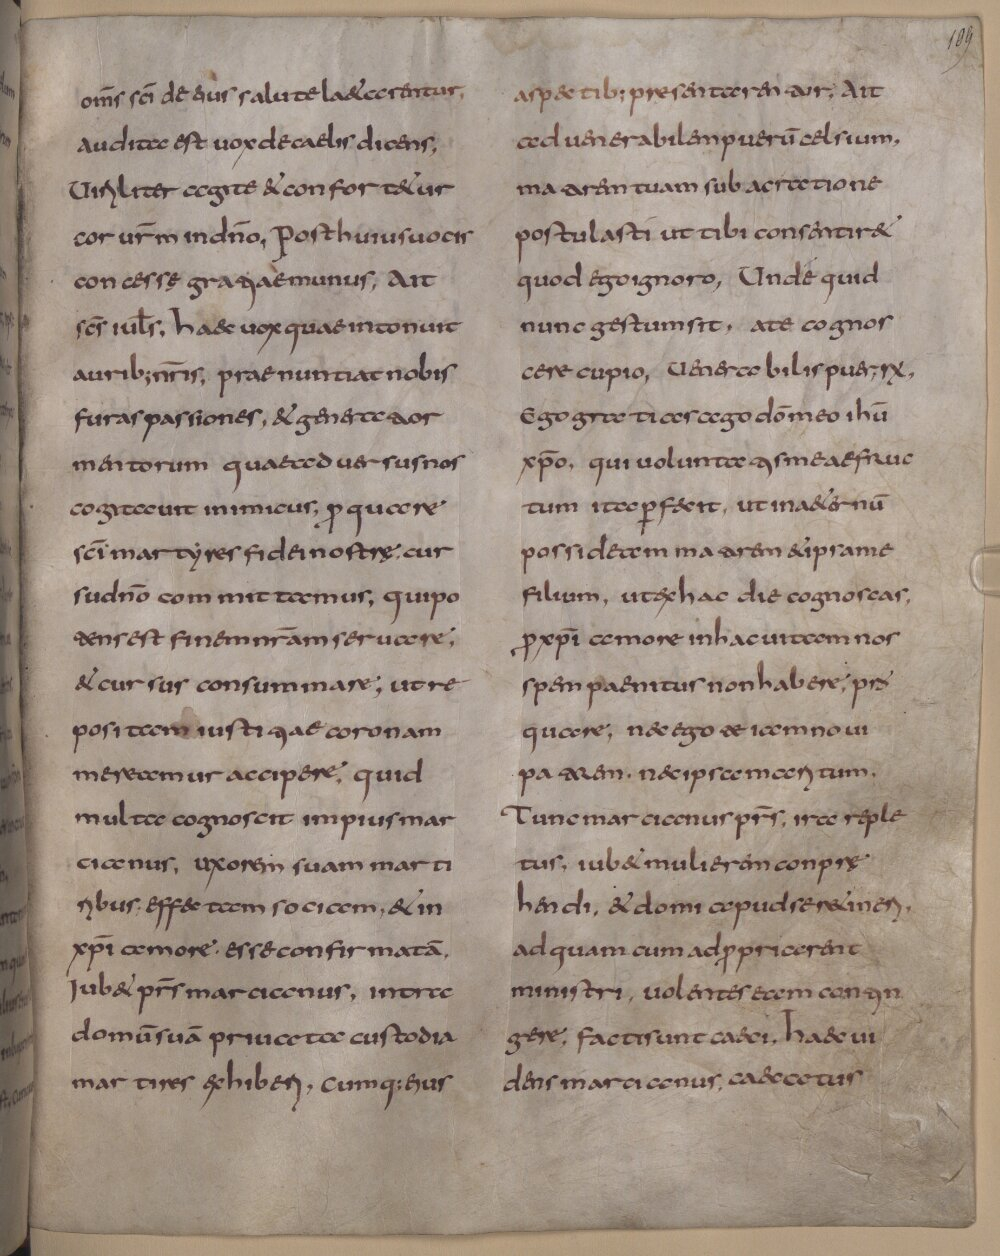 189
om̄s sc̄i de eius salute laetarentur,
Audita est vox de caelis dicens,
Viriliter agite & confortetur
cor ur̄m in dn̄o, Post huius uocis
concesse gratiae munus, Ait
sc̄s iul̄s, haec uox quae intonuit
aurib; nr̄is, praenuntiat nobis
futuras passiones, & genera tor
mentorum quae aduersus nos
cogitauit inimicus, ꝓ quare
sc̄i martyres fidei nostrę, cur
sū dn̄o committamus, qui po
tens est finem nr̄am seruare,
& cursus consummare, ut re
positam iustitiae coronam
mereamur accipere, quid
multa cognoscit impius mar
cianus, uxorem suam marti
ribus effectam sociam, & in
xp̄i amore esse confirmatā,
Iub& pr̄s marcianus, intra
domū suā priuata custodia
martires exhiberi, Cumq; eius
aspectib; presentarentur, Ait
ad uenerabilem puerū celsium,
matrem tuam sub acratione
postulasti ut tibi consentir&
quod ego ignoro, Unde quid
nunc gestum sit, a te cognos
cere cupio, Uenerabilis puer; rx,
Ego gratias ago dōmeo ihū
xp̄o, qui uoluntatis meae fruc
tum ita ꝑfecit, ut in aeternū
possideam matrem & ipsa me
filium, ut ex hac die cognoscas,
ꝓ xp̄i amore in hac uitam nos
spem paenitus non habere, pro
quare, nec ego te iam noui
patrem, nec ipsa maritum,
Tunc marcianus pr̄s, ira reple
tus, iub& mulierem conprę
hendi, & domi apud se retineri,
ad quam cum adꝓpriarent
ministri, uolentes eam contin
gere, facti sunt caeci, haec ui
dens marcianus, caecatus